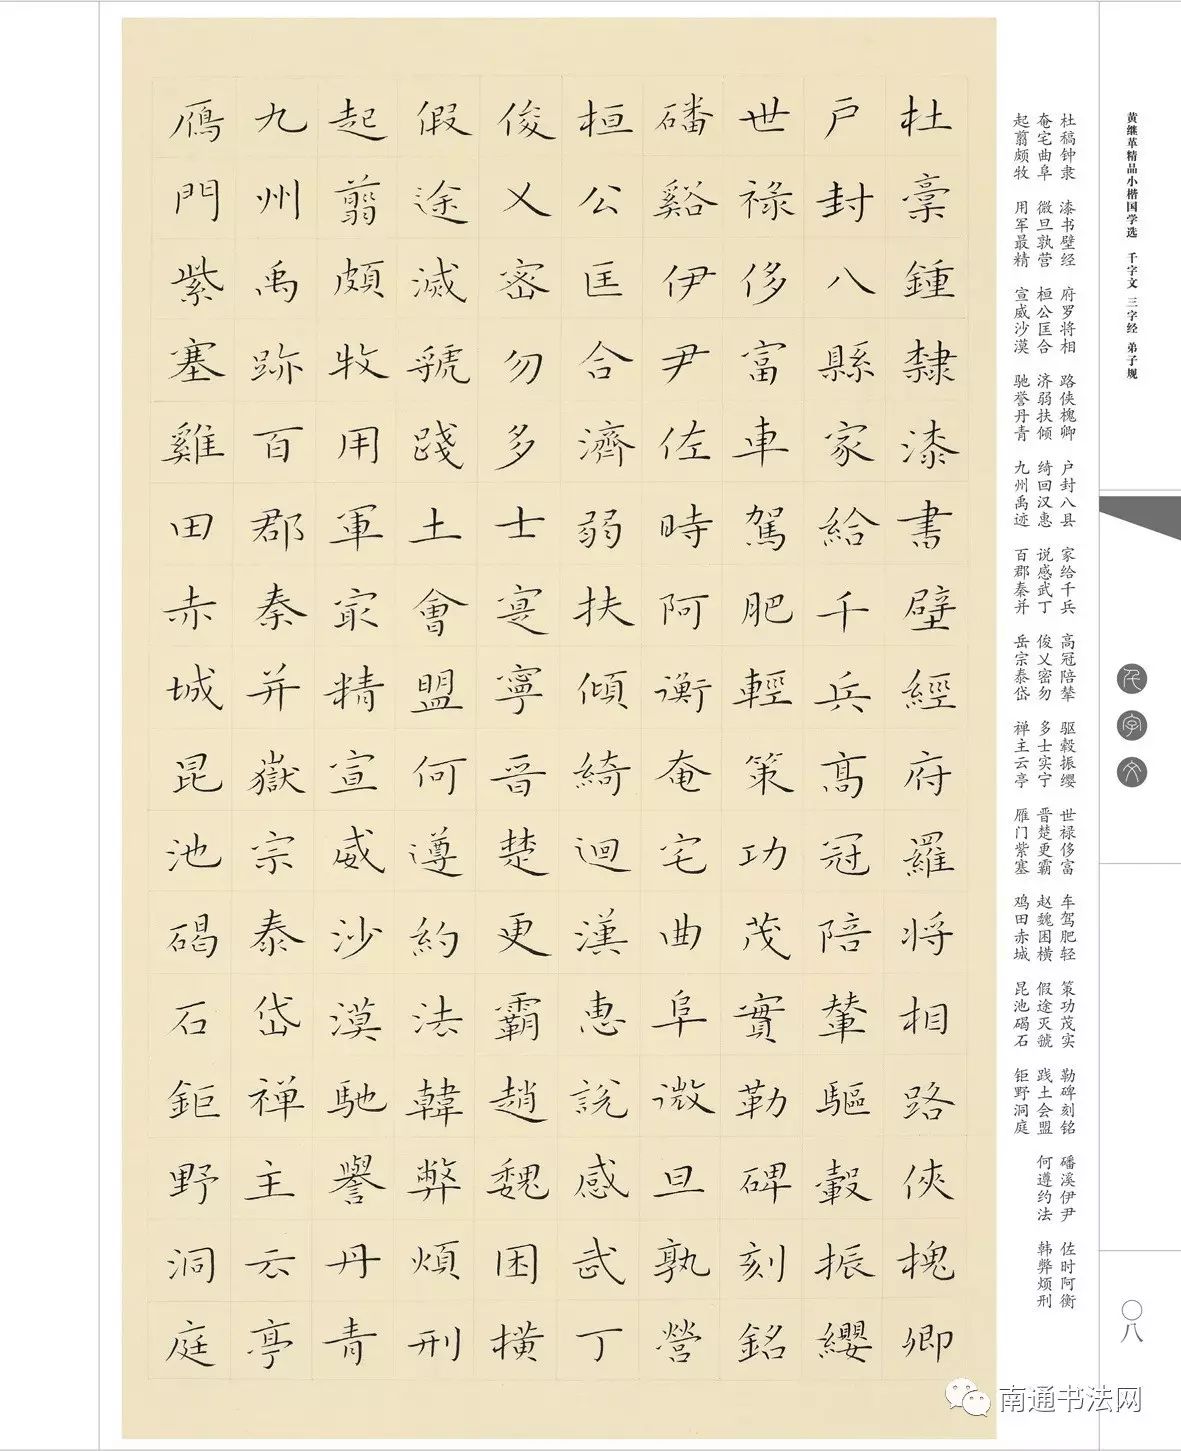 黄继革精品小楷国学选 千字文 三字经 弟子规
千字文
〇八
杜稿钟隶 漆书壁经 府罗将相 路侠槐卿 户封八县 家给千兵 高冠陪辇 驱毂振缨 世禄侈富 车驾肥轻 策功茂实 勒碑刻铭 磻溪伊尹 佐时阿衡
奄宅曲阜 微旦孰营 桓公匡合 济弱扶倾 绮回汉惠 说感武丁 俊乂密勿 多士实宁 晋楚更霸 赵魏困横 假途灭虢 践土会盟 何遵约法 韩弊烦刑
起翦颇牧 用军最精 宣威沙漠 驰誉丹青 九州禹迹 百郡秦并 岳宗泰岱 禅主云亭 雁门紫塞 鸡田赤城 昆池碣石 钜野洞庭
杜稾鍾隸漆書壁經府羅将相路俠槐卿
戶封八縣家給千兵髙冠陪輦驅轂振纓
世祿侈富車駕肥輕策功茂實勒碑刻銘
磻谿伊尹佐時阿衡奄宅曲阜微旦孰營
桓公匡合濟弱扶傾綺迴漢惠說感武丁
俊乂密勿多士寔寧晉楚更霸趙魏困橫
假途滅虢踐土會盟何遵約法韓弊煩刑
起翦頗牧用軍冣精宣威沙漠馳譽丹青
九州禹跡百郡秦并嶽宗泰岱禅主云亭
鴈門紫塞雞田赤城昆池碣石鉅野洞庭
南通书法网